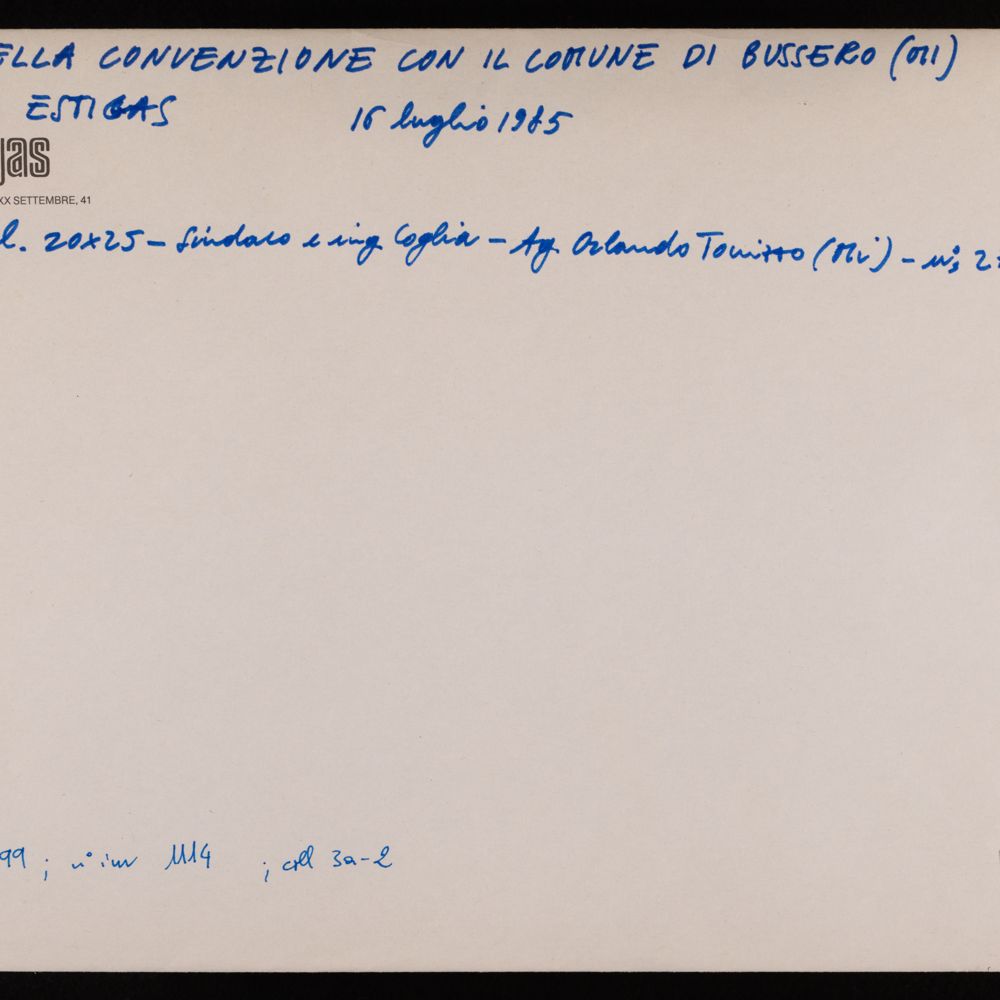 ELLA CONVENZIONE CON IL COMUNE DI BUSSERO (MI)
ESTIGAS 16 luglio 1985
gas
XX SETTEMBRE, 41
l. 20x25 - Sindaco e ing Coglia - Ag. Orlando (Mi) -
99 ; n° inv 1114 ; coll 3a-2